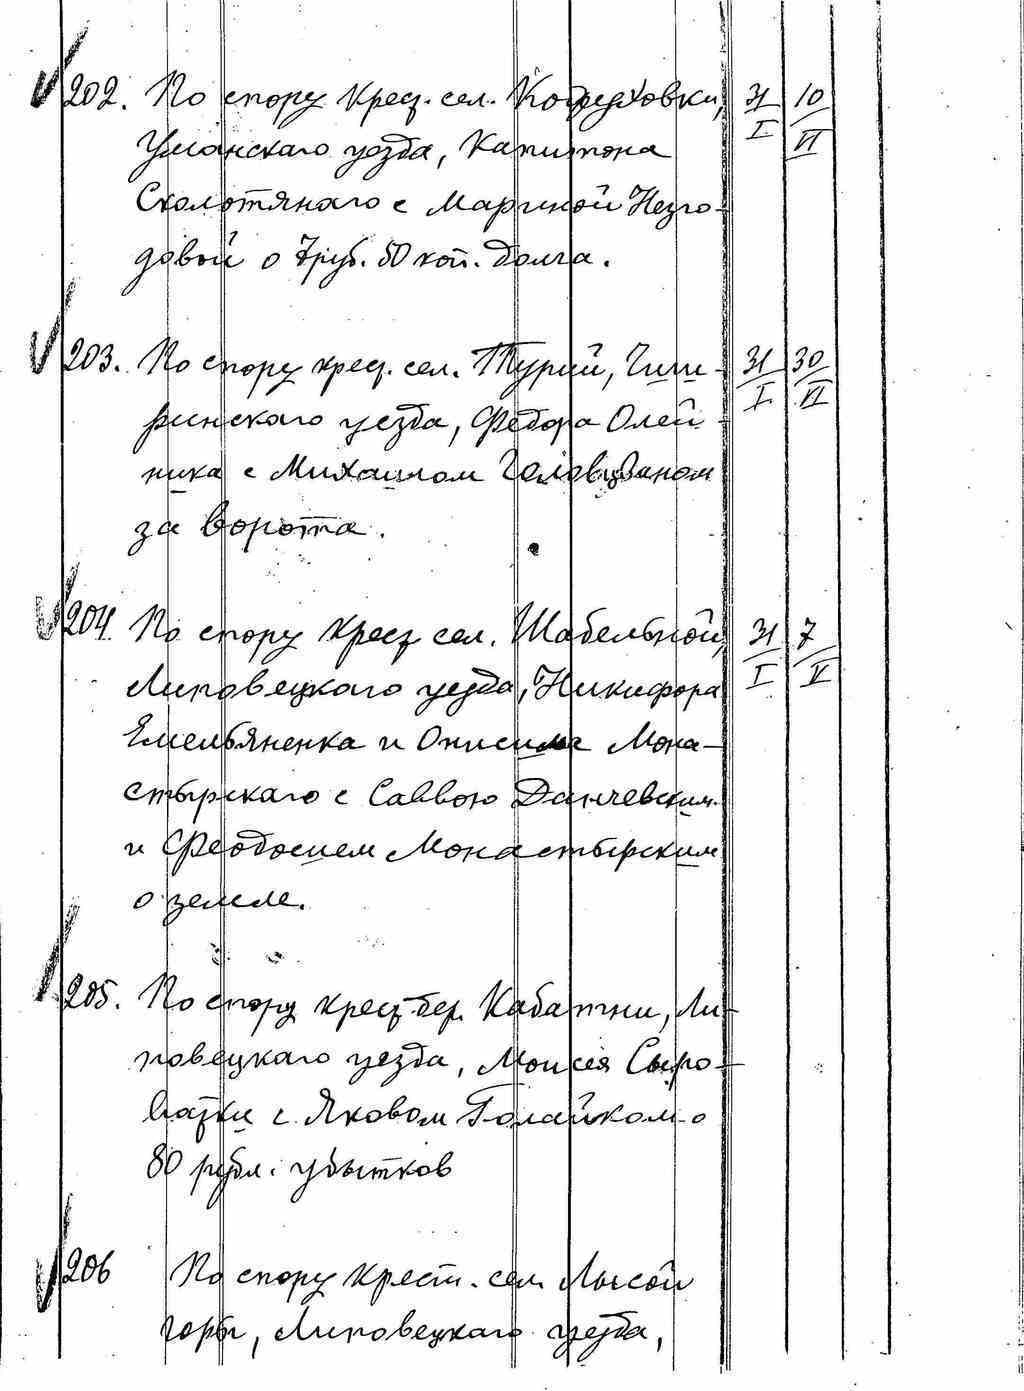 202. По спору крес. сел. Кобриновки, 31/I 10/VI
Уманскаго уезда, Капитона
Сколотянаго с Мариной Незго-
довой о 7 руб. 50 коп. долга.
203. По спору крес. сел. Турии, Чиги- 31/I 30/VI
ринскаго уезда, Федора Олей-
ника с Михаилом Головцваном
за ворота.
204. По спору крес. сел. Шабельной, 31/I 7/V
Липовецкаго уезда, Никифора
Емельяненка и Онисима Мона-
стырскаго с Саввою Данчевским
и Феодосием Монастырским
о земле.
205. По спору крес. дер. Кабатни, Ли-
повецкаго уезда, Моисея Сыро-
ватки с Яковом Голайком о
80 рубл. убытков
206 По спору крест. сел. Лысой
горы, Липовецкаго уезда,